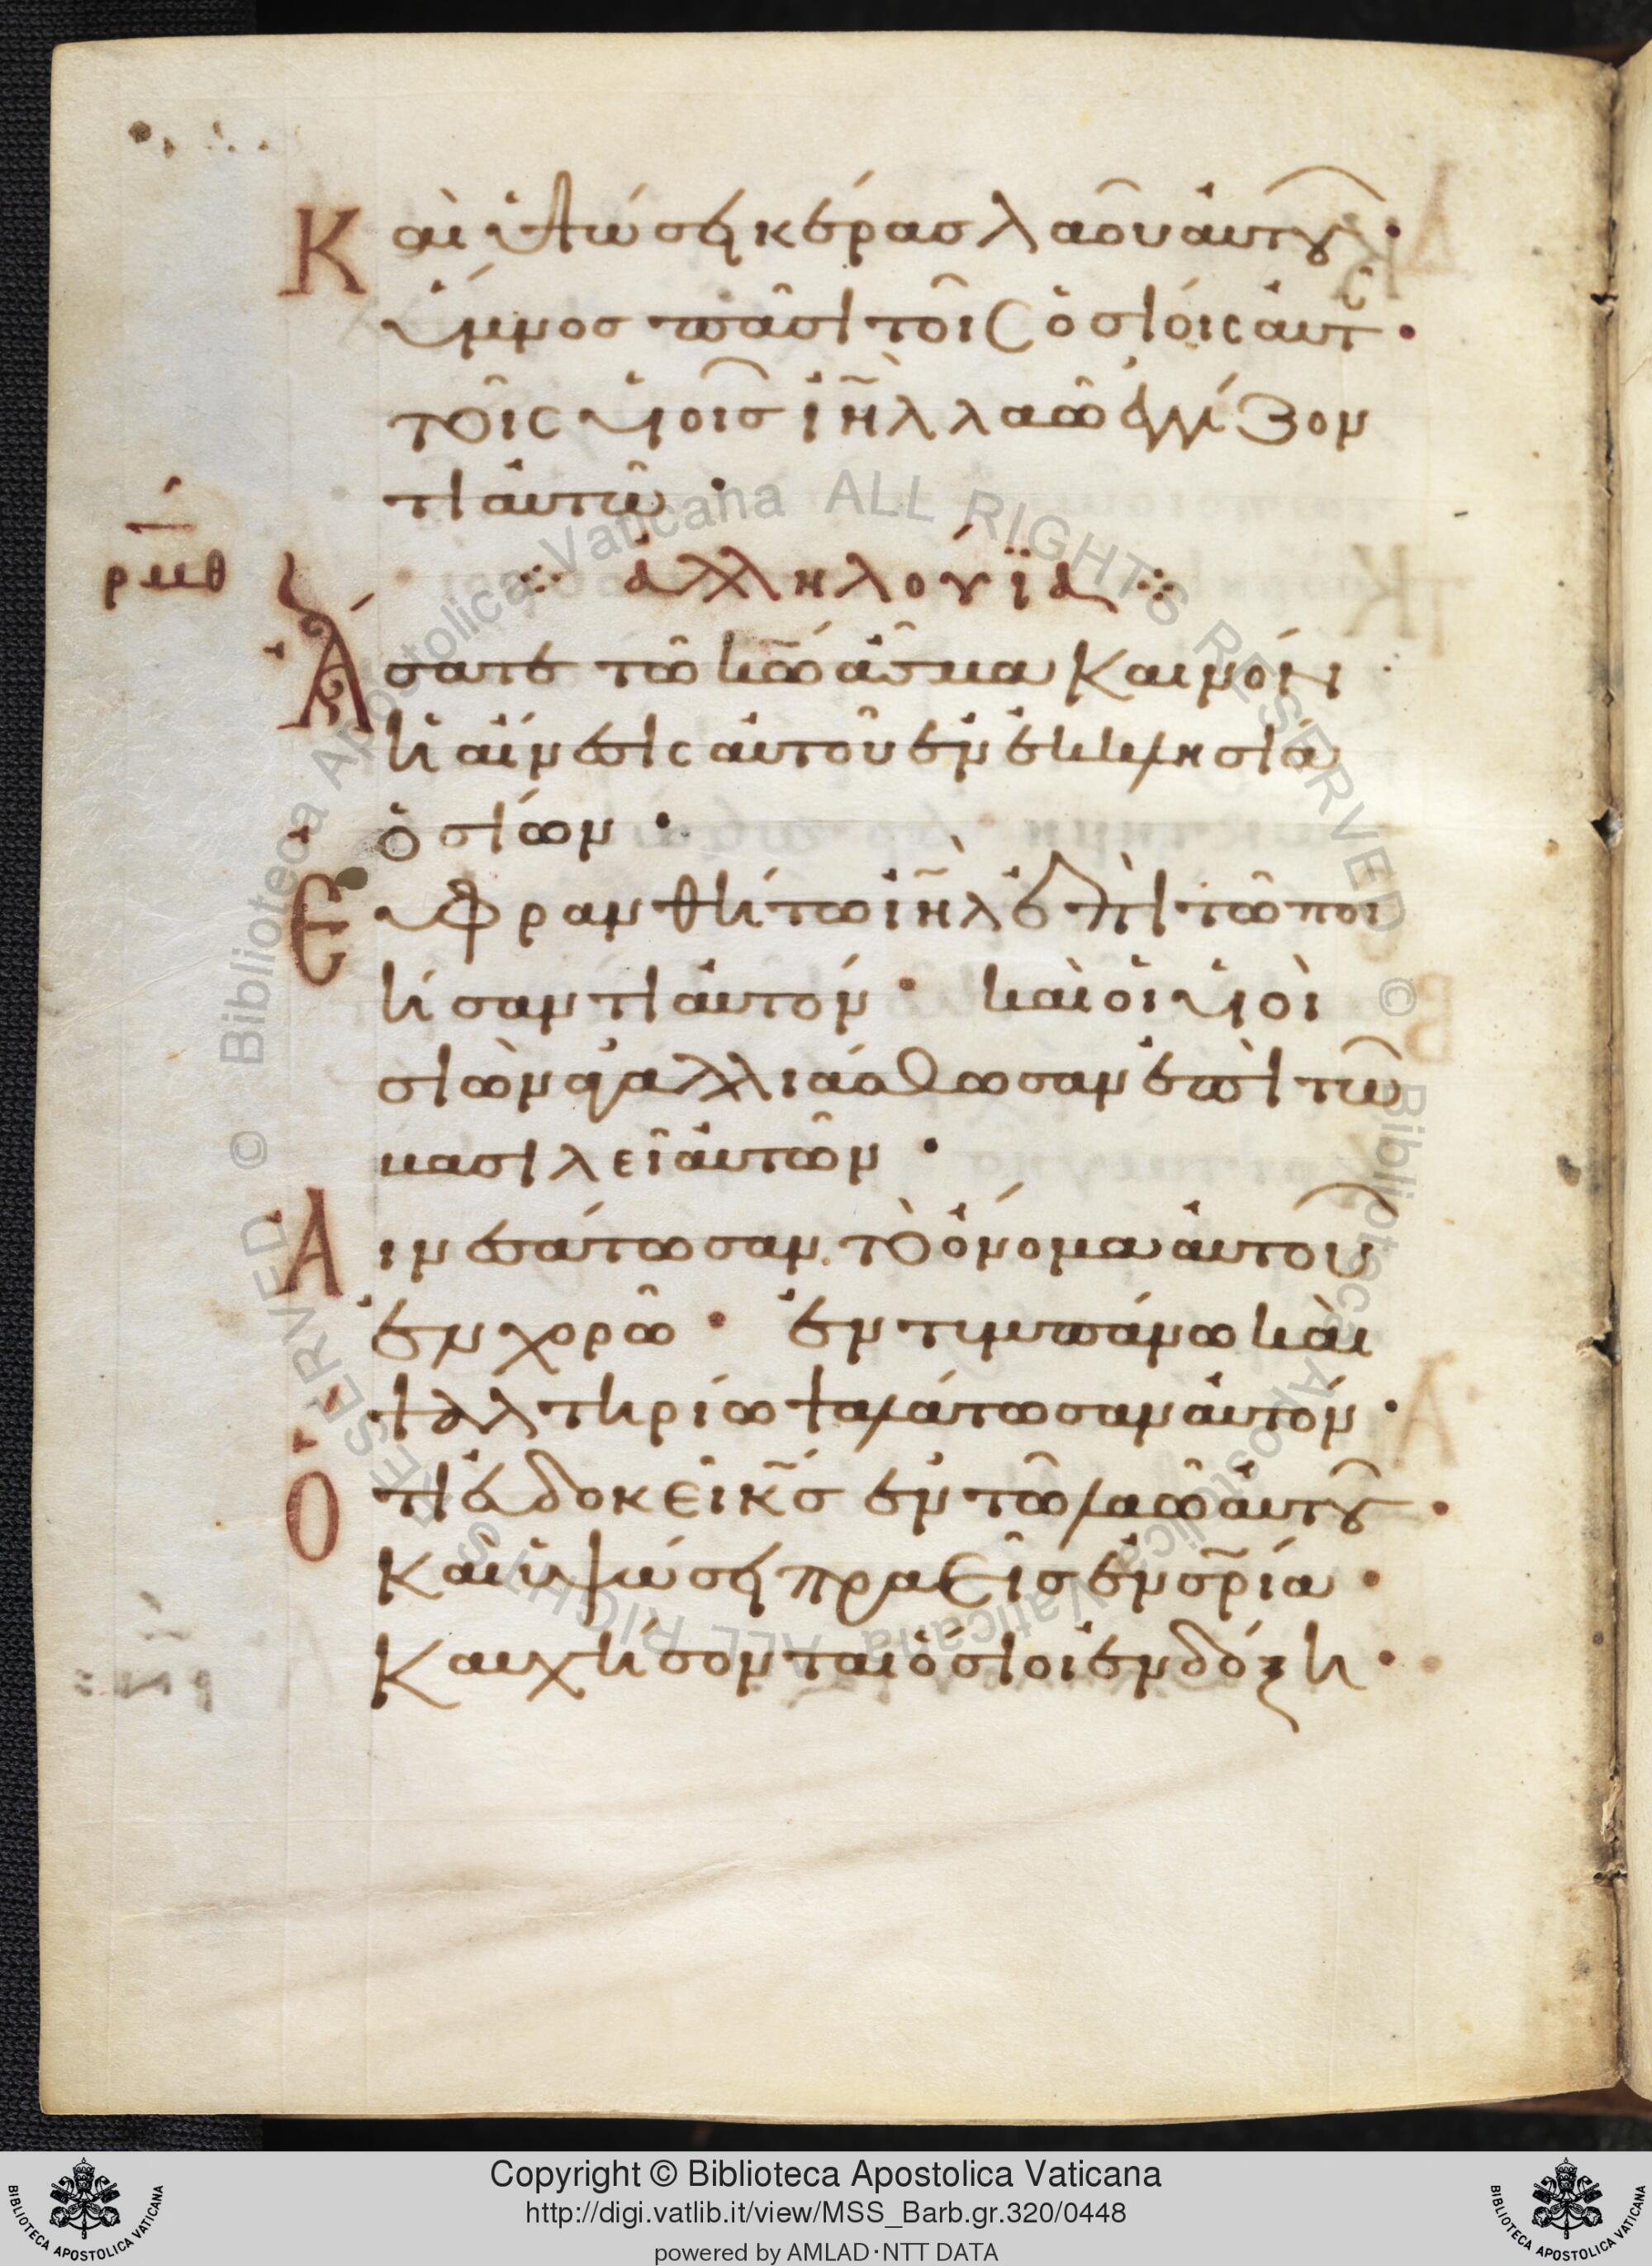 Καὶ ὑψώσῃ κέρας λαοῦ αὐτοῦ·
ὕμνος πᾶσι τοῖς ὁσίοις αὐτοῦ·
τοῖς υἱοῖς ἰη̃λ λαῶ ἐγγίζον
τι αὐτῶ·
ρμθ
ἀλληλούϊα
Ἄσατε τῶ κω̃ ἄσμα καινόν·
ἡ αἴνεσις αὐτοῦ ἐν ἐκκλησία
ὁσίων·
Εὐφρανθήτω ἰη̃λ ἐπὶ τῶ ποι
ήσαντι αὐτόν· καὶ οἱ υἱοὶ
σιὼν ἀγαλλιάσθωσαν ἐπὶ τῶ
βασιλεῖ αὐτῶν·
Αἰνεσάτωσαν τὸ ὄνομα αὐτοῦ
ἐν χορῶ· ἐν τυμπάνω καὶ
ψαλτηρίω ψαλάτωσαν αὐτόν·
Ὅτι εὐδοκεῖ κς̃ ἐν τῶ λαῶ αὐτοῦ·
καὶ ὑψώσῃ πραεῖς ἐν σρ̃ία·
Καυχήσονται ὅσιοι ἐν δόξη·
Copyright © Biblioteca Apostolica Vaticana
http://digi.vatlib.it/view/MSS_Barb.gr.320/0448
powered by AMLAD·NTT DATA
BIBLIOTECA APOSTOLICA VATICANA
BIBLIOTECA APOSTOLICA VATICANA
© Biblioteca Apostolica Vaticana ALL RIGHTS RESERVED © Biblioteca Apostolica Vaticana ALL RIGHTS RESERVED